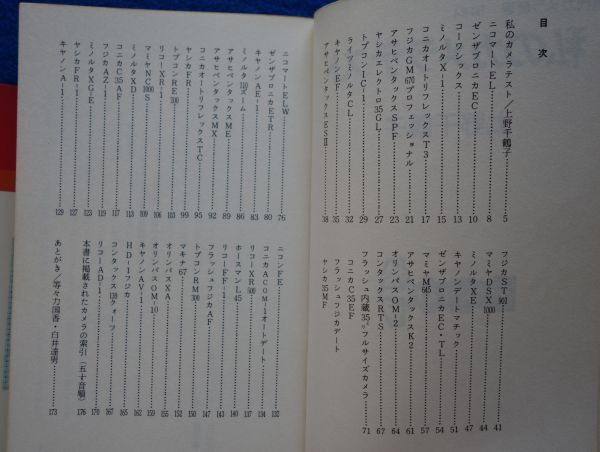 目次
私のカメラテスト/上野千鶴子……5
ニコマートEL……8
ゼンザブロニカEC……10
コーワシックス……13
ミノルタX-1……15
コニカオートリフレックスT3……17
フジカGM670プロフェッショナル……21
アサヒペンタックスSPF……23
ヤシカエレクトロ35GL……27
トプコンIC-1……29
ライツミノルタCL……32
キヤノンEF……35
アサヒペンタックスESⅡ……38
フジカST901……41
マミヤDSX1000……44
ミノルタXE……47
キヤノンデートマチック……51
ゼンザブロニカEC・TL……54
マミヤM645……57
アサヒペンタックスK2……61
オリンパスOM-2……64
コンタックスRTS……67
フラッシュ内蔵35ミリフルサイズカメラ……71
コニカC35EF
フラッシュフジカデート
ヤシカ35MF
ニコマートELW……76
ゼンザブロニカETR……80
キヤノンAE-1……83
ミノルタ110ズーム……86
アサヒペンタックスME……89
アサヒペンタックスMX……92
コニカオートリフレックスTC……95
ヤシカFR……99
トプコンRE300……103
リコーXR-1……106
マミヤNC1000S……109
ミノルタXD……113
コニカC35AF……117
フジカAZ-1……119
ミノルタXG-E……123
ヤシカFR-I……127
キヤノンA-1……129
ニコンFE……132
コニカACOM-1オートデート……134
リコーXR500……137
ホースマンL45……140
リコーFF-1……143
フラッシュフジカAF……147
トプコンRM300……150
マキナ67……152
オリンパスXA……155
オリンパスOM10……159
キヤノンAV-1……162
HD-1フジカ……165
コンタックス139クォーツ……167
リコーAD-1……170
本書に掲載されたカメラの索引(五十音順)……176
あとがき/等々力国香・白井達男……173